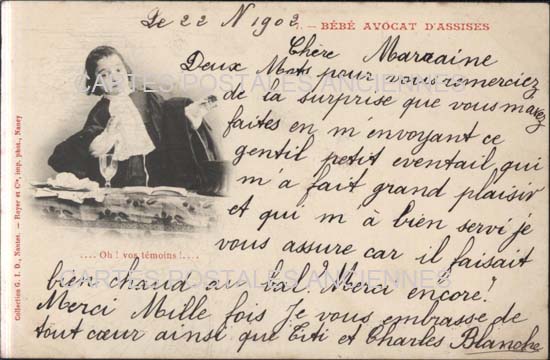 Le 22 N 1902
7. — BÉBÉ AVOCAT D'ASSISES
Chère Marraine
Deux Mots pour vous remerciez
de la surprise que vous mavez
faites en m'envoyant ce
gentil petit eventail qui
m'a fait grand plaisir
et qui m'à bien servi je
vous assure car il faisait
bien chaud au bal "Merci encore".
Merci Mille fois Je vous embrasse de
tout cœur ainsi que Titi et Charles Blanche
.... Oh ! vos témoins !....
Collection G. I. D., Nantes. — Royer et Cie, imp. phot., Nancy
CARTES POSTALES ANCIENNES
CARTES POSTALES ANCIENNES